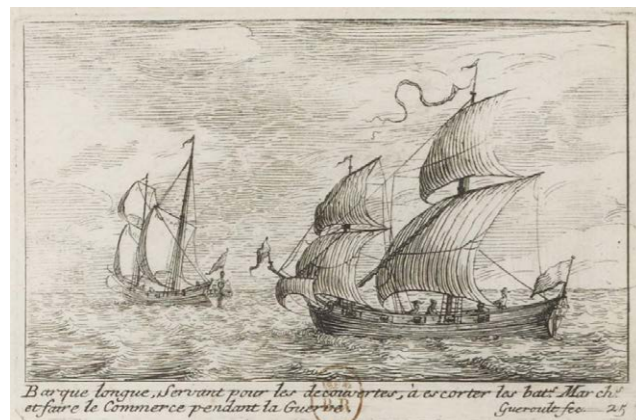 Barque longue, Servant pour les decouvertes, à escorter les batts. Marchs.
et faire le Commerce pendant la Guerre Gueroult fec. 25